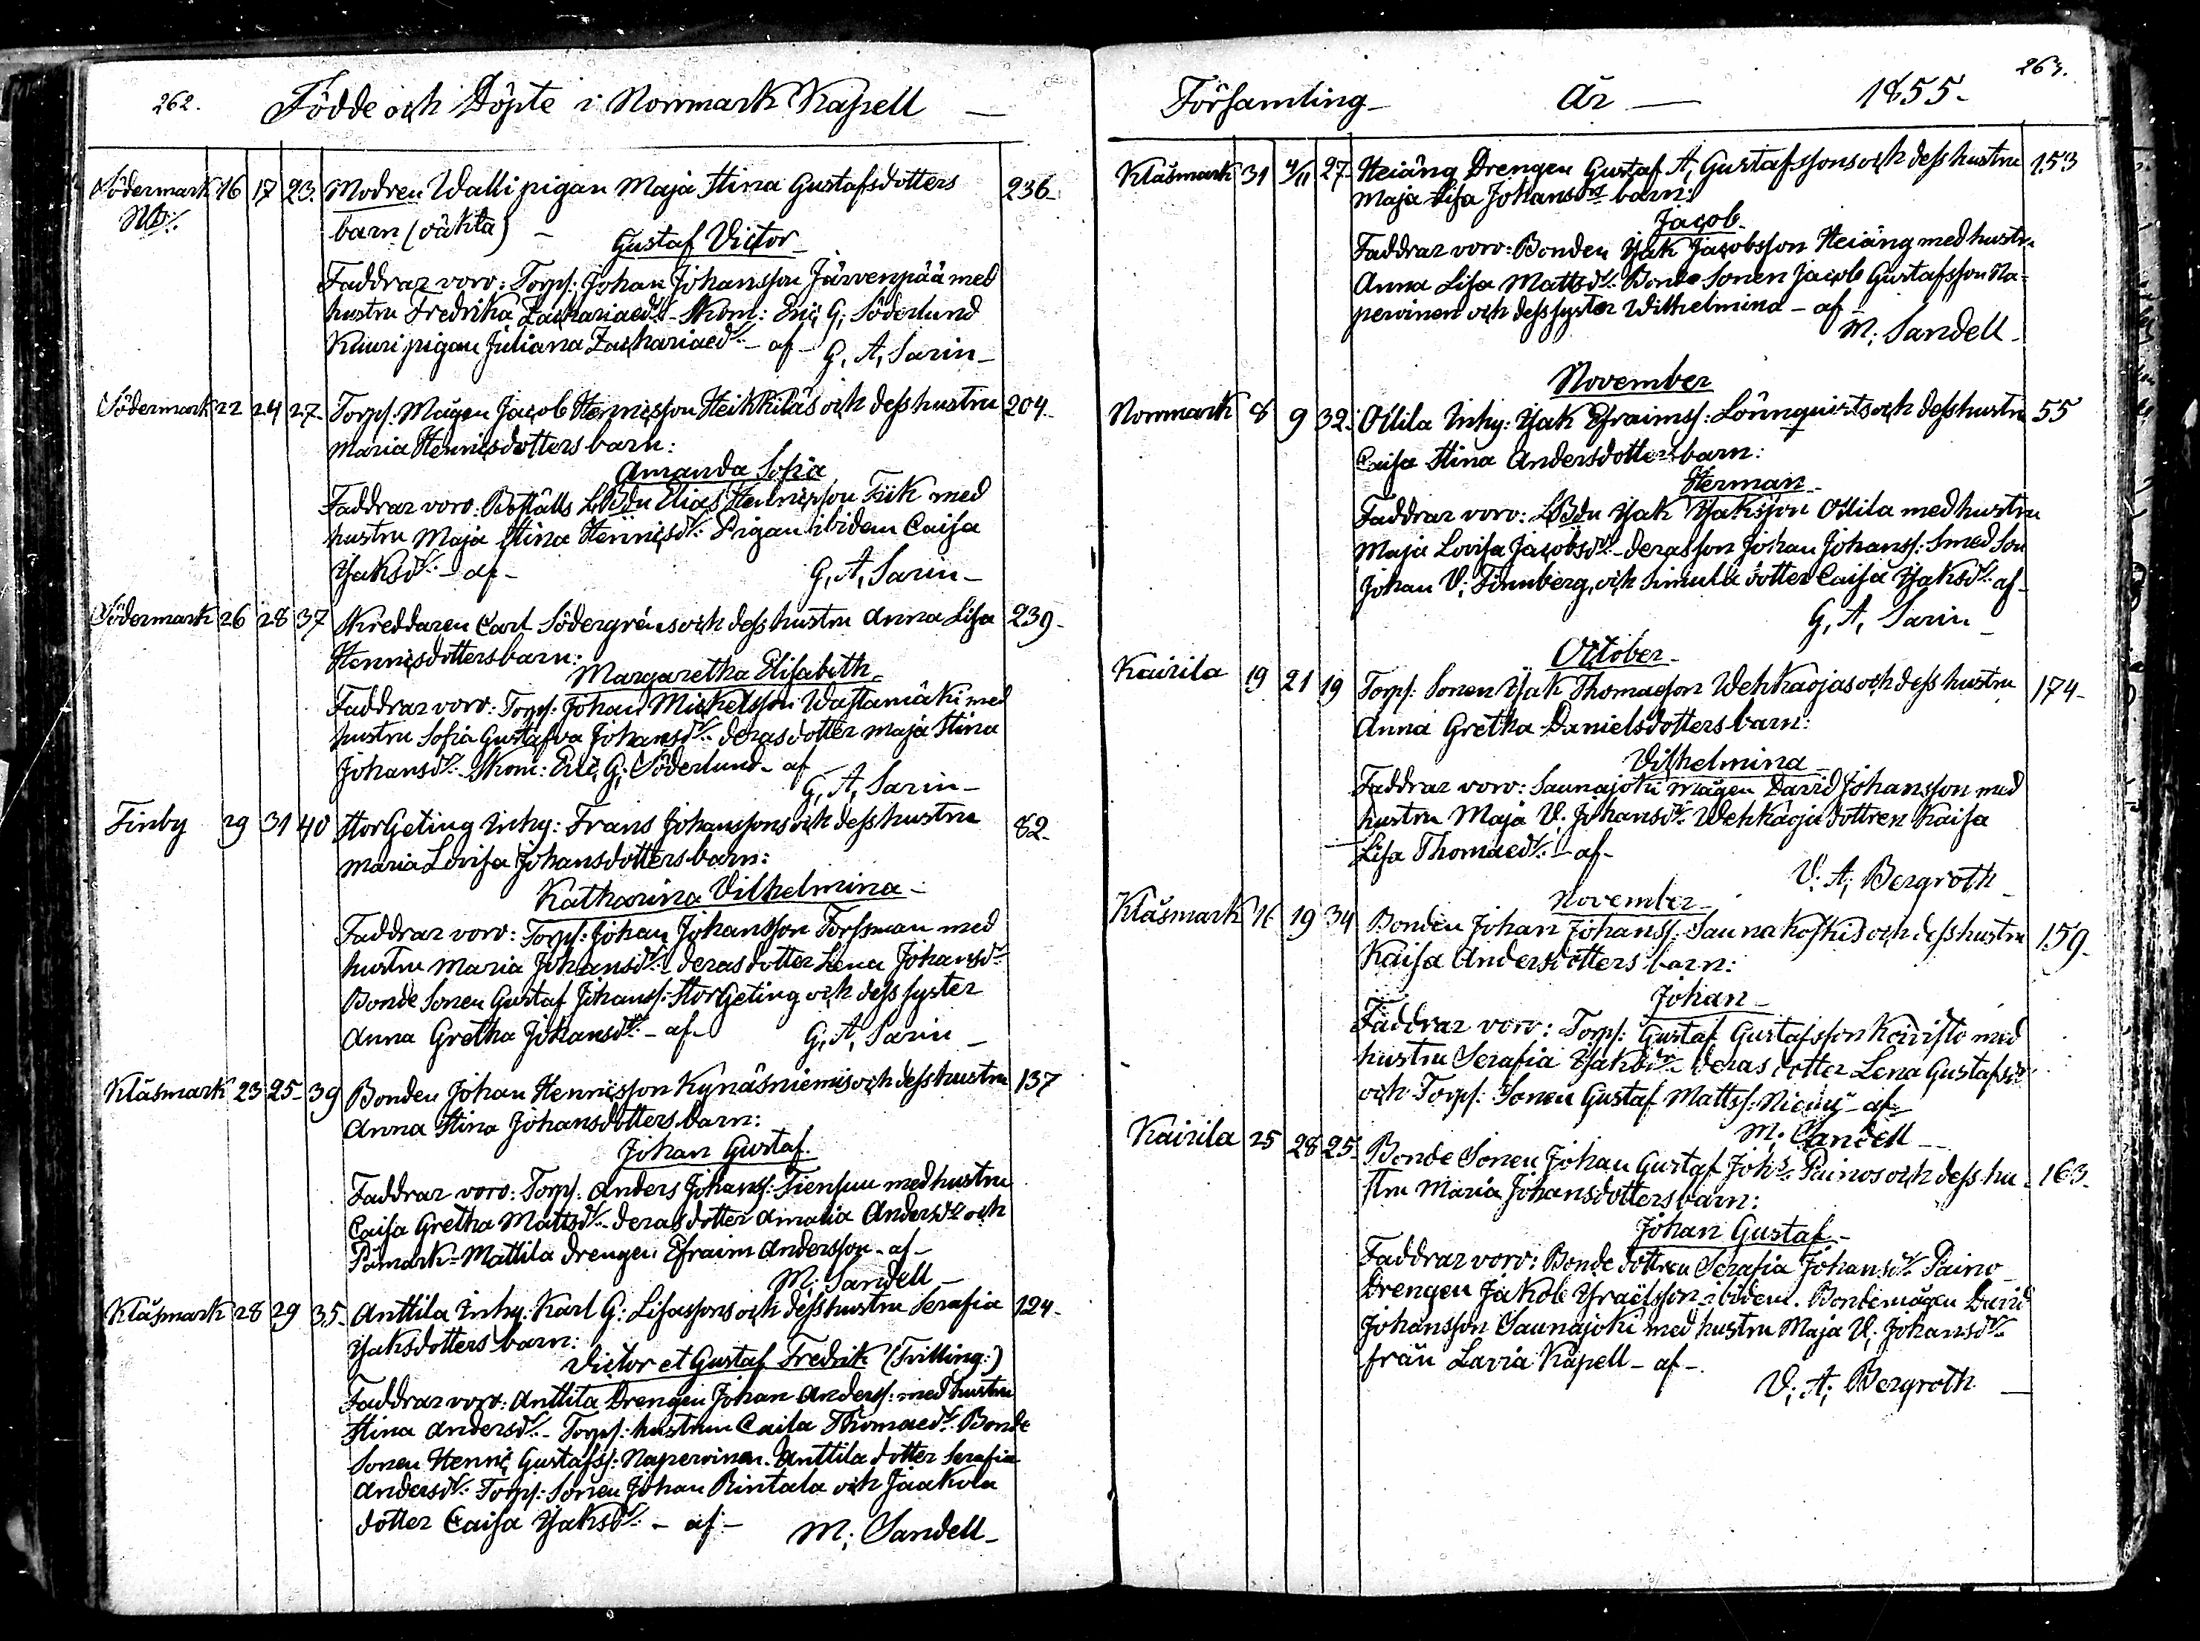 262. Födde och Döpte i Norrmark Kapell —
Södermark 16 17 23. Modren Walli pigan Maja Stina Gustafsdotters 236.
Nb/. barn (oäkta) —
Gustaf Victor
Faddrar voro: Torp: Johan Johansson Järvenpää med
hustru Fredrika Zachariaed:r Skom: Eric G; Söderlund
Kuuri pigan Juliana Zachariaed:r – af – G, A, Sarin –
Södermark 22 24 27. Torp: Mågen Jacob Henricsson Heikkilä's och dess hustru 204.
Maria Henricsdotters barn:
Amanda Sofia
Faddrar voro: Boställs LBdn Elias Henricsson Fiik med
hustru Maja Stina Henricsd:r Pigan ibidem Caisa
Isaksd:r – af – G, A, Sarin –
Södermark 26 28 37 Skreddaren Carl Södergréns och dess hustru Anna Lisa 239.
Henricsdotters barn:
Margaretha Elisabeth
Faddrar voro: Torp: Johan Mickelsson Wastamäki med
hustru Sofia Gustafva Johansd:r deras dotter Maja Stina
Johansd:r Skom: Eric G; Söderlund – af
G, A, Sarin –
Finby 29 31 40 StorGeting Inhy: Frans Johanssons och dess hustru 82.
Maria Lovisa Johansdotters barn:
Katharina Vilhelmina –
Faddrar voro: Torp: Johan Johansson Forssman med
hustru Maria Johansd:r deras dotter Lena Johansd:r
Bonde Sonen Gustaf Johanss: StorGeting och dess syster
Anna Gretha Johansd:r – af – G, A, Sarin –
Klåsmark 23 25 39 Bonden Johan Henricsson Kynäsniemis och dess hustru 137
Anna Stina Johansdotters barn:
Johan Gustaf
Faddrar voro: Torp: Anders Johanss: Tiensuu med hustru
Caisa Gretha Mattsd:r deras dotter Amalia Andersd:r och
Påmark-Mattila drengen Efraim Andersson – af –
M; Sandell –
Klåsmark 28 29 35. Anttila Inhy: Karl G: Lisassons och dess hustru Serafia 124.
Isaksdotters barn:
Victor et Gustaf Fredrik (Tvilling:)
Faddrar voro: Anttila Drengen Johan Anderss: med hustru
Stina Andersd:r Torp: hustrun Caisa Thomaed:r Bonde
Sonen Henric Gustafss: Naperoinen. Anttila dotter Serafia
Andersd:r Torp: Sonen Johan Rintala och Jaakola
dotter Caisa Isaksd:r – af – M; Sandell –
Församling – År — 1855. 263.
Klåsmark 31 4/11 27. Heiäng Drengen Gustaf A, Gustafssons och dess hustru 153
Maja Lisa Johansd:rs barn:
Jacob
Faddrar voro: Bonden Isak Jacobsson Heiäng med hustru
Anna Lisa Mattsd:r Bonde Sonen Jacob Gustafsson Na-
peroinen och dess syster Wilhelmina – af –
M; Sandell –
November
Norrmark 8 9 32. Ottila Inhy: Isak Efraimss: Lönnquists och dess hustru 55
Caisa Stina Andersdotters barn:
Herman
Faddrar voro: LBdn Isak Isaksson Ottila med hustru
Maja Lovisa Jacobsd:r deras son Johan Johanss: Smed Son
Johan V; Finnberg, och Simula dotter Caisa Isaksd:r af –
G, A, Sarin –
October
Kairila 19 21 19 Torp: Sonen Isak Thomasson Wehkaojas och dess hustru 174.
Anna Gretha Danielsdotters barn:
Vilhelmina
Faddrar voro: Saunajoki mågen David Johansson med
hustru Maja V. Johansd:r Wehkaoja dottren Kaisa
Lisa Thomaed:r – af –
V; A; Bergroth
November
Klåsmark 16 19 34 Bonden Johan Johanss: Saunakoskis och dess hustru 159.
Kaisa Andersdotters barn:
Johan –
Faddrar voro: Torp: Gustaf Gustafsson Koivisto med
hustru Serafia Isaksd:r deras dotter Lena Gustafsd:r
och Torp: Sonen Gustaf Mattss: Niemi – af –
M; Sandell –
Kairila 25 28 25. Bonde Sonen Johan Gustaf Joh:s Painos och dess hu- 163.
stru Maria Johansdotters barn:
Johan Gustaf –
Faddrar voro: Bonde dottren Serafia Johansd:r Paino
Drengen Jakob Israelsson ibidem. Bondemågen David
Johansson Saunajoki med hustru Maja V; Johansd:r
från Lavia Kapell – af –
V; A; Bergroth –